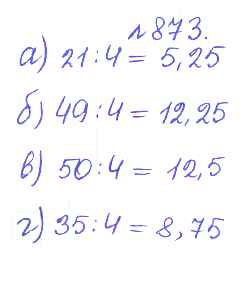 №873.
а) 21:4 = 5,25
б) 49:4 = 12,25
в) 50:4 = 12,5
г) 35:4 = 8,75